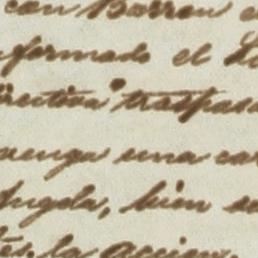 con Borron
formado el
irectiva traspasa
venga una car
Angela, bien
la accion,